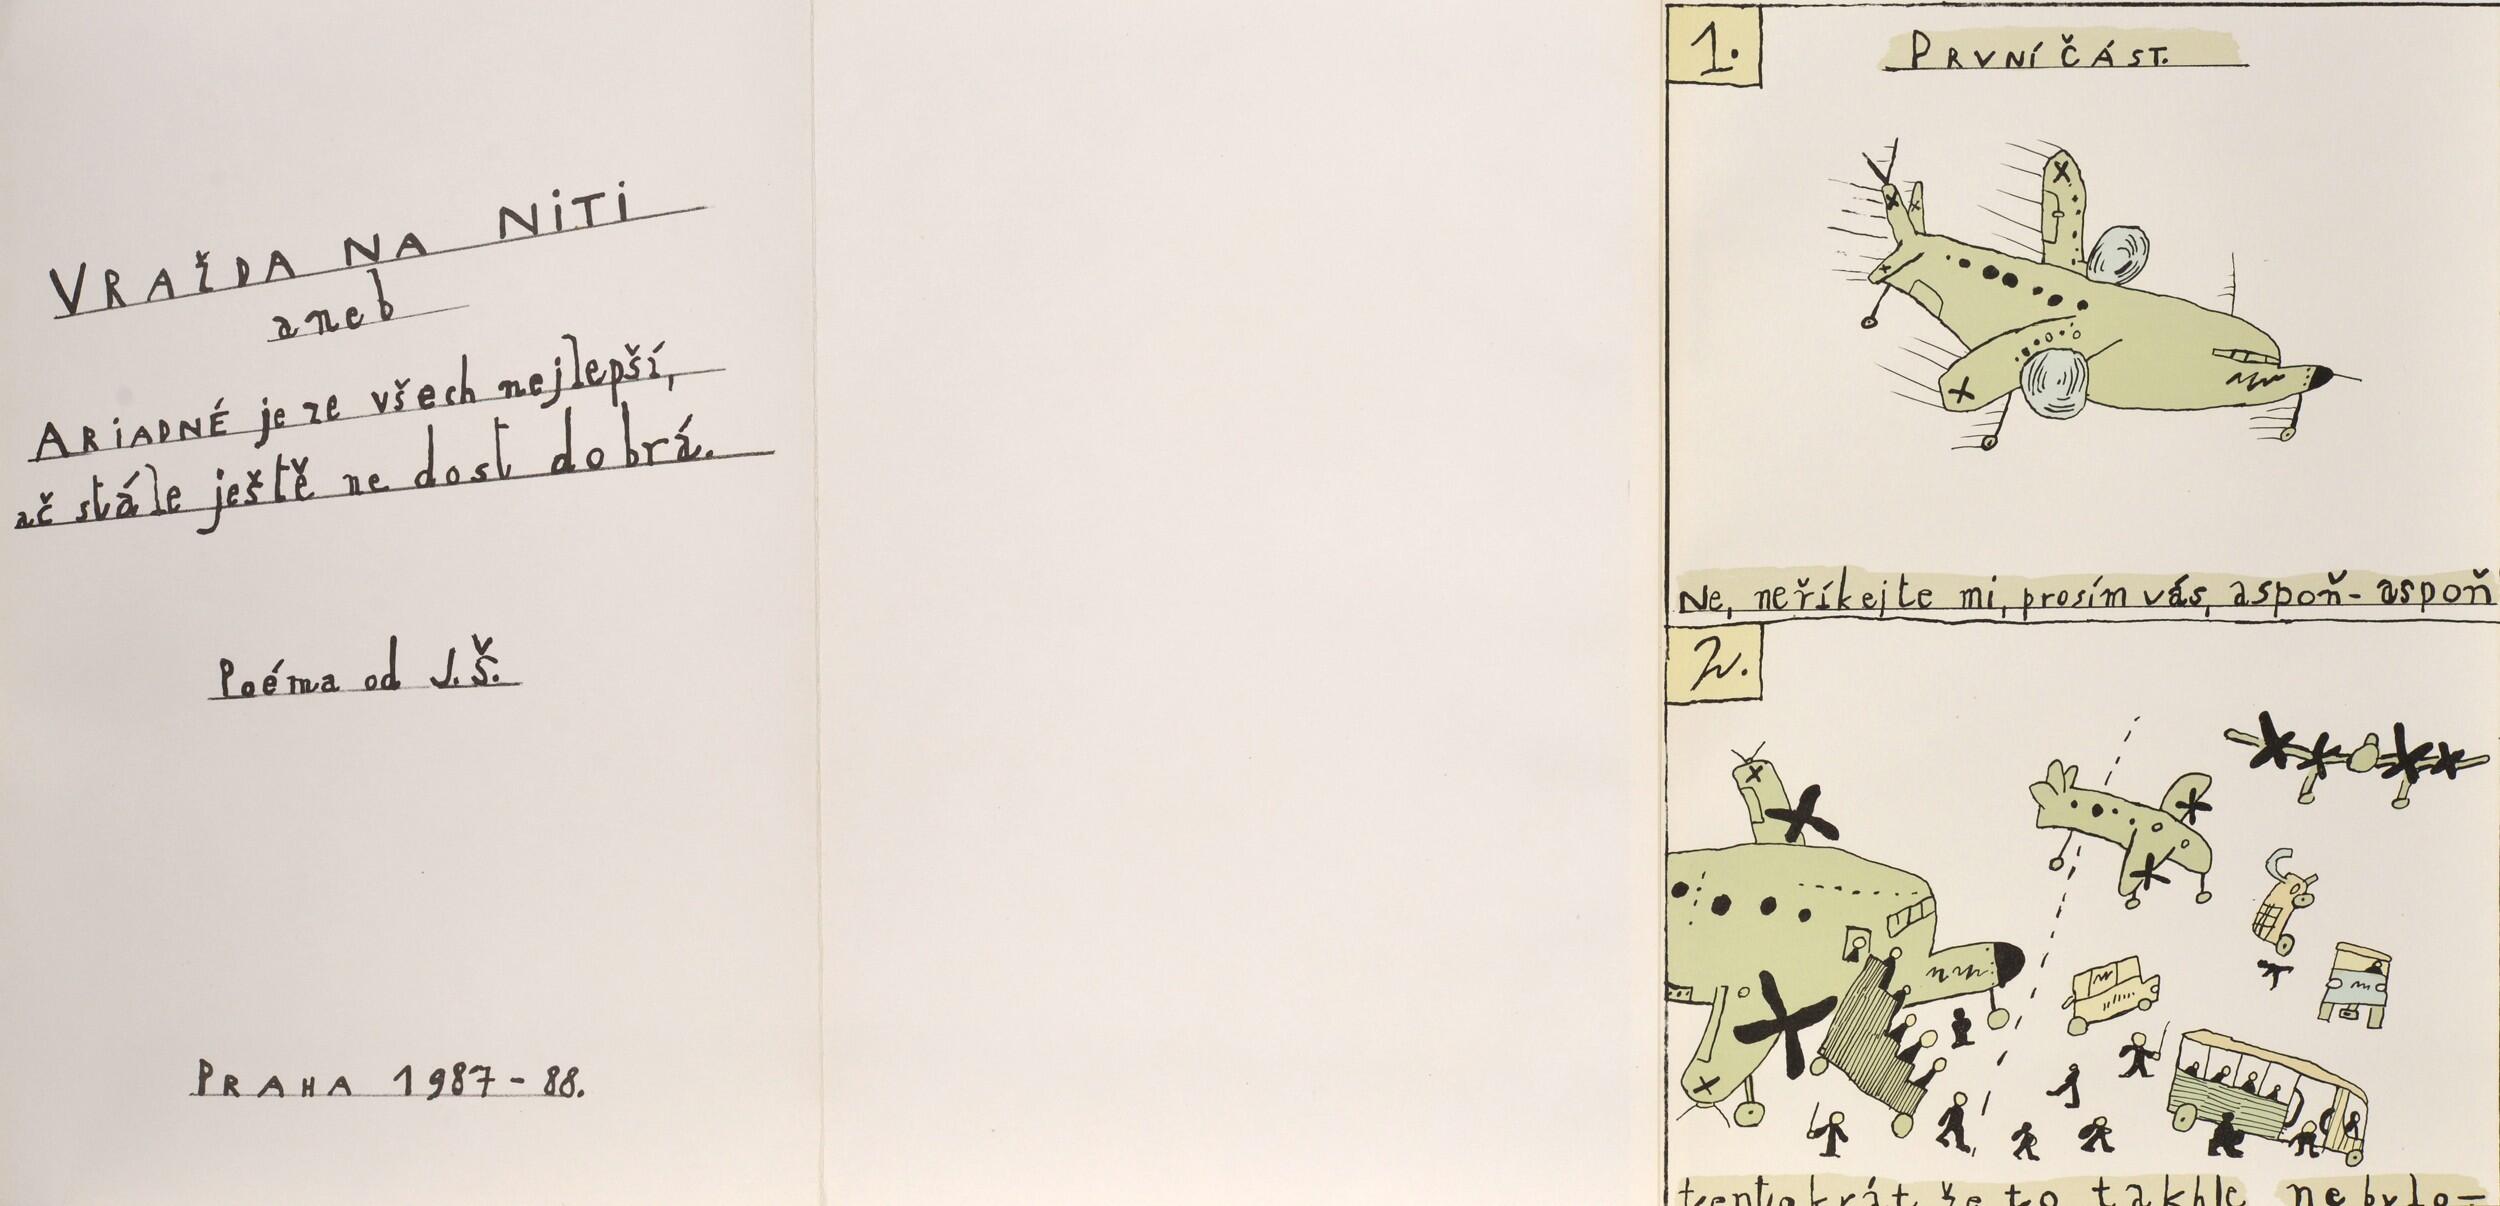 VRAŽDA NA NiTi
aneb
ARiADNÉ je ze všech nejlepší,
ač stále ještě ne dost dobrá.
Poéma od J.Š.
PRAHA 1987-88.
1.
PRVNÍ ČÁST.
Ne, neříkejte mi, prosím vás, aspoň- aspoň
2.
tentokrát že to takhle nebylo-